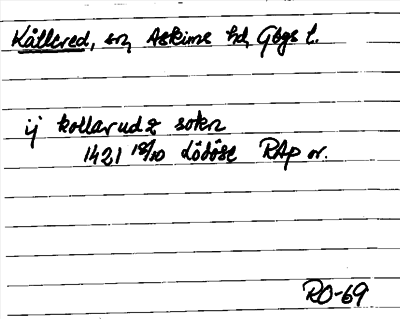 Kållered, sn, Askims hd, Gbgs l.
ij kollarudz sokn
1421 18/10 Lödöse RAp or.
RO-69